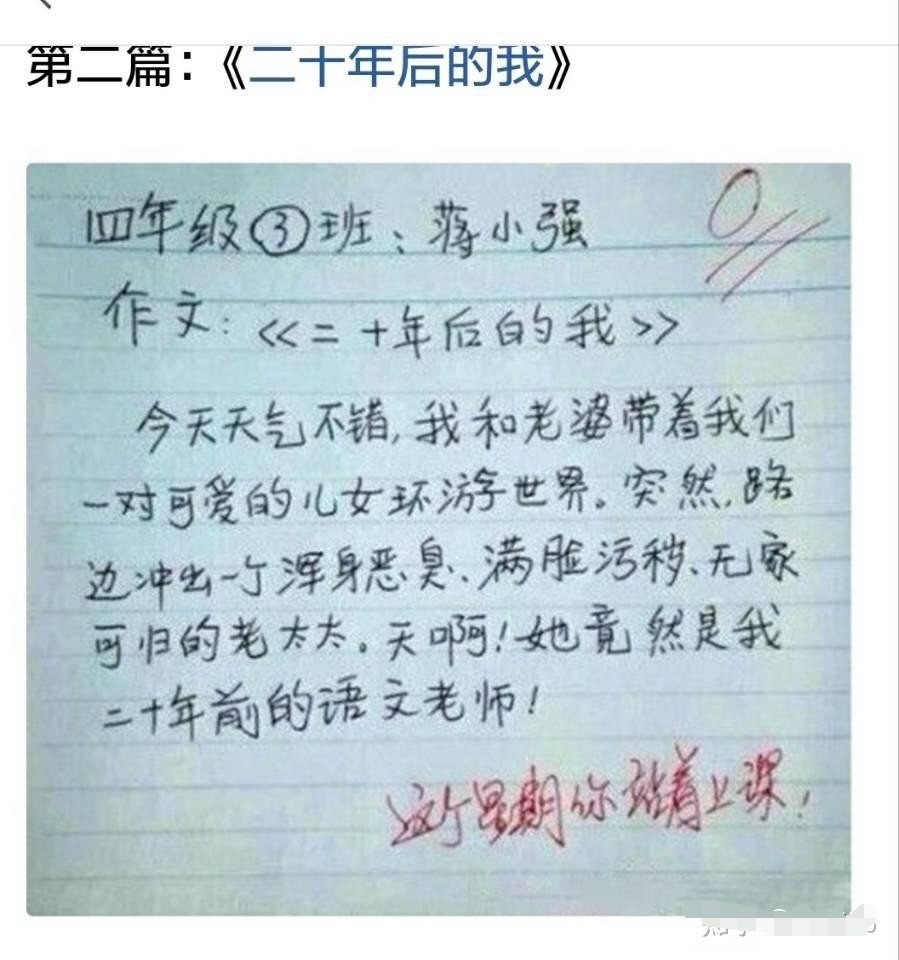 第二篇：《二十年后的我》
四年级③班：蒋小强
0
作文：<<二十年后的我>>
今天天气不错，我和老婆带着我们
一对可爱的儿女环游世界。突然，路
边冲出一个浑身恶臭、满脸污秽、无家
可归的老太太。天啊！她竟然是我
二十年前的语文老师！
这个星期你站着上课！